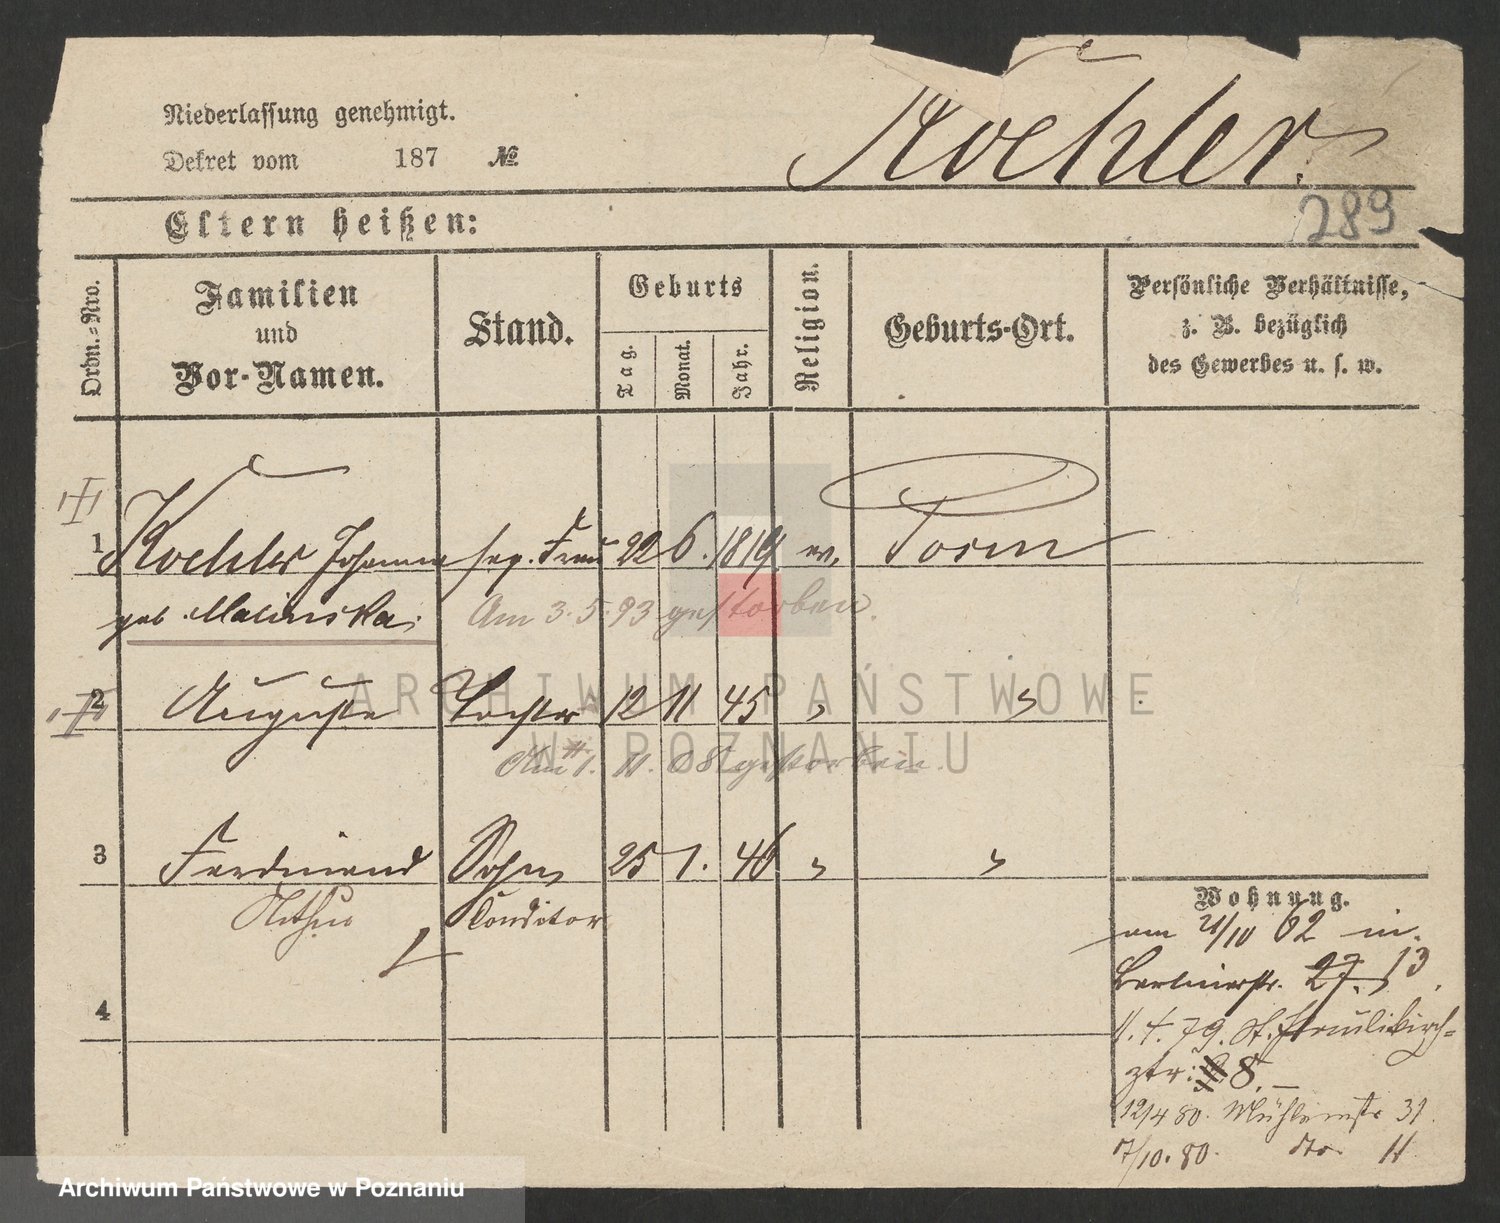 Niederlassung genehmigt.
Dekret vom 187 №
Koehler.
289
Eltern heißen:
Ordn.=Nro.
Familien
und
Vor-Namen.
Stand.
Geburts
Tag.
Monat.
Jahr.
Religion.
Geburts-Ort.
Persönliche Verhältnisse,
z. B. bezüglich
des Gewerbes u. s. w.
1 Koehler Johanna sep. Frau 22 6. 1819 ev. Posen
geb. Malinska. Am 3.5.93 gestorben.
2 Auguste Tochter 12 11 45 " "
Am 1. 11. 08 gestorben.
3 Ferdinand Sohn 25 1. 46 " "
Conditor
4
Wohnung.
am 21/10 62 in
Berlinerstr. 27. 13.
11. 4. 79. St. Paulikirch=
str: 8. —
12/4 80. Mühlenstr 31.
7/10. 80. dto. 11
ARCHIWUM PAŃSTWOWE
W POZNANIU
Archiwum Państwowe w Poznaniu